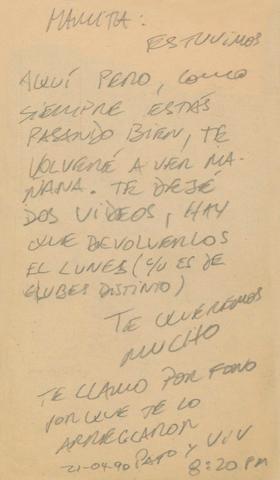 MAMITA:
ESTUVIMOS
AQUÍ PERO, COMO
SIEMPRE ESTÁS
PASANDO BIEN, TE
VOLVERÉ A VER MA-
ÑANA. TE DEJÉ
DOS VIDEOS, HAY
QUE DEVOLVERLOS
EL LUNES (C/U ES DE
CLUBES DISTINTO)
TE QUEREMOS
MUCHO
TE LLAMO POR FONO
PORQUE TE LO
ARREGLARON
21-04-90 PATO Y VIV
8:20 PM